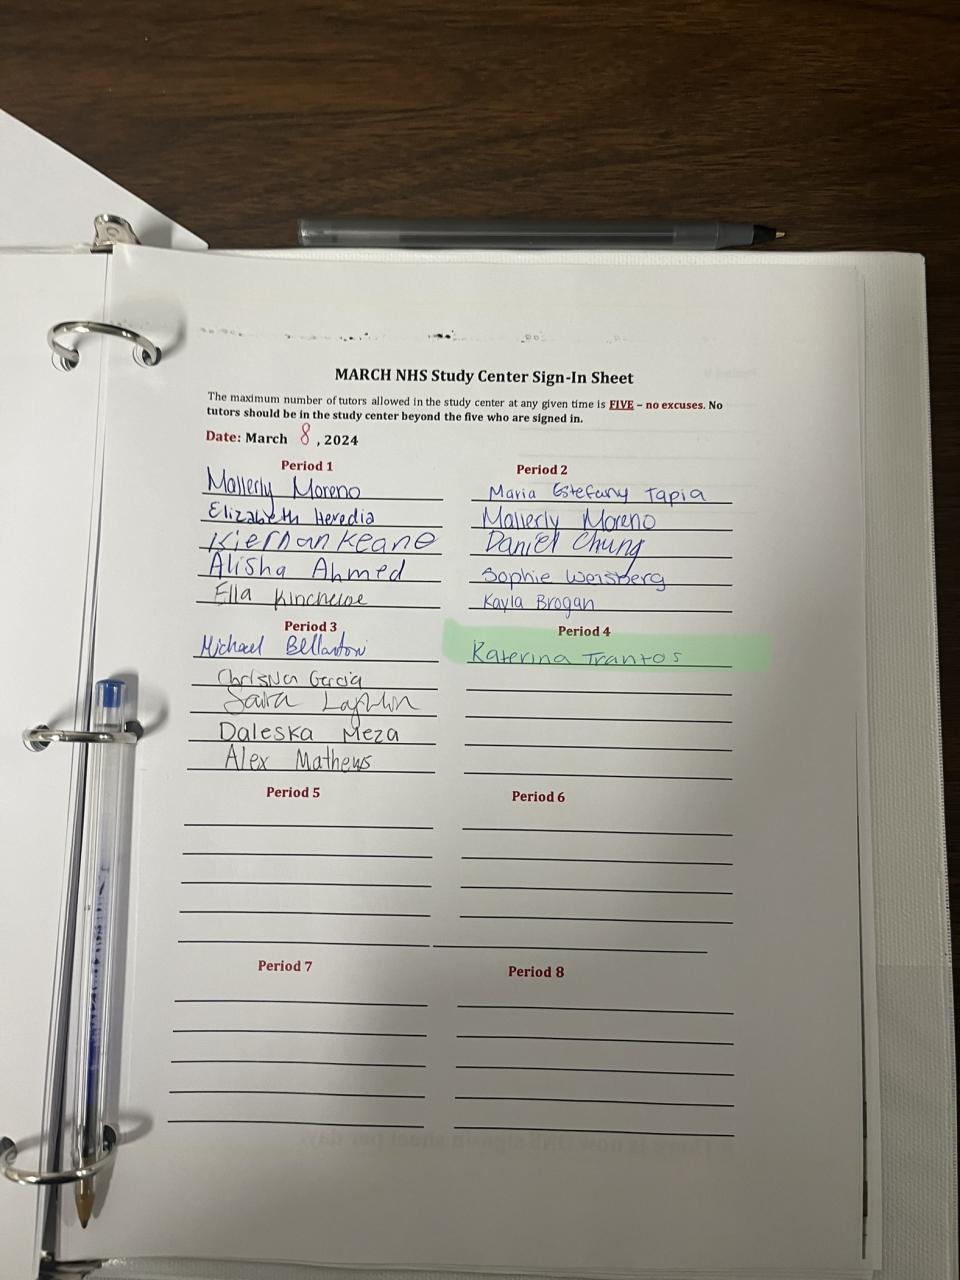 MARCH NHS Study Center Sign-In Sheet
The maximum number of tutors allowed in the study center at any given time is FIVE – no excuses. No
tutors should be in the study center beyond the five who are signed in.
Date: March 8, 2024
Period 1
Mallerly Moreno
Elizabeth Heredia
Kiernan Keane
Alisha Ahmed
Ella Kincheloe
Period 2
Maria Estefany Tapia
Mallerly Moreno
Daniel Chung
Sophie Weisberg
Kayla Brogan
Period 3
Michael Bellantoni
Garcia
Daleska Meza
Alex Mathews
Period 4
Katerina Trantos
Period 5
Period 6
Period 7
Period 8